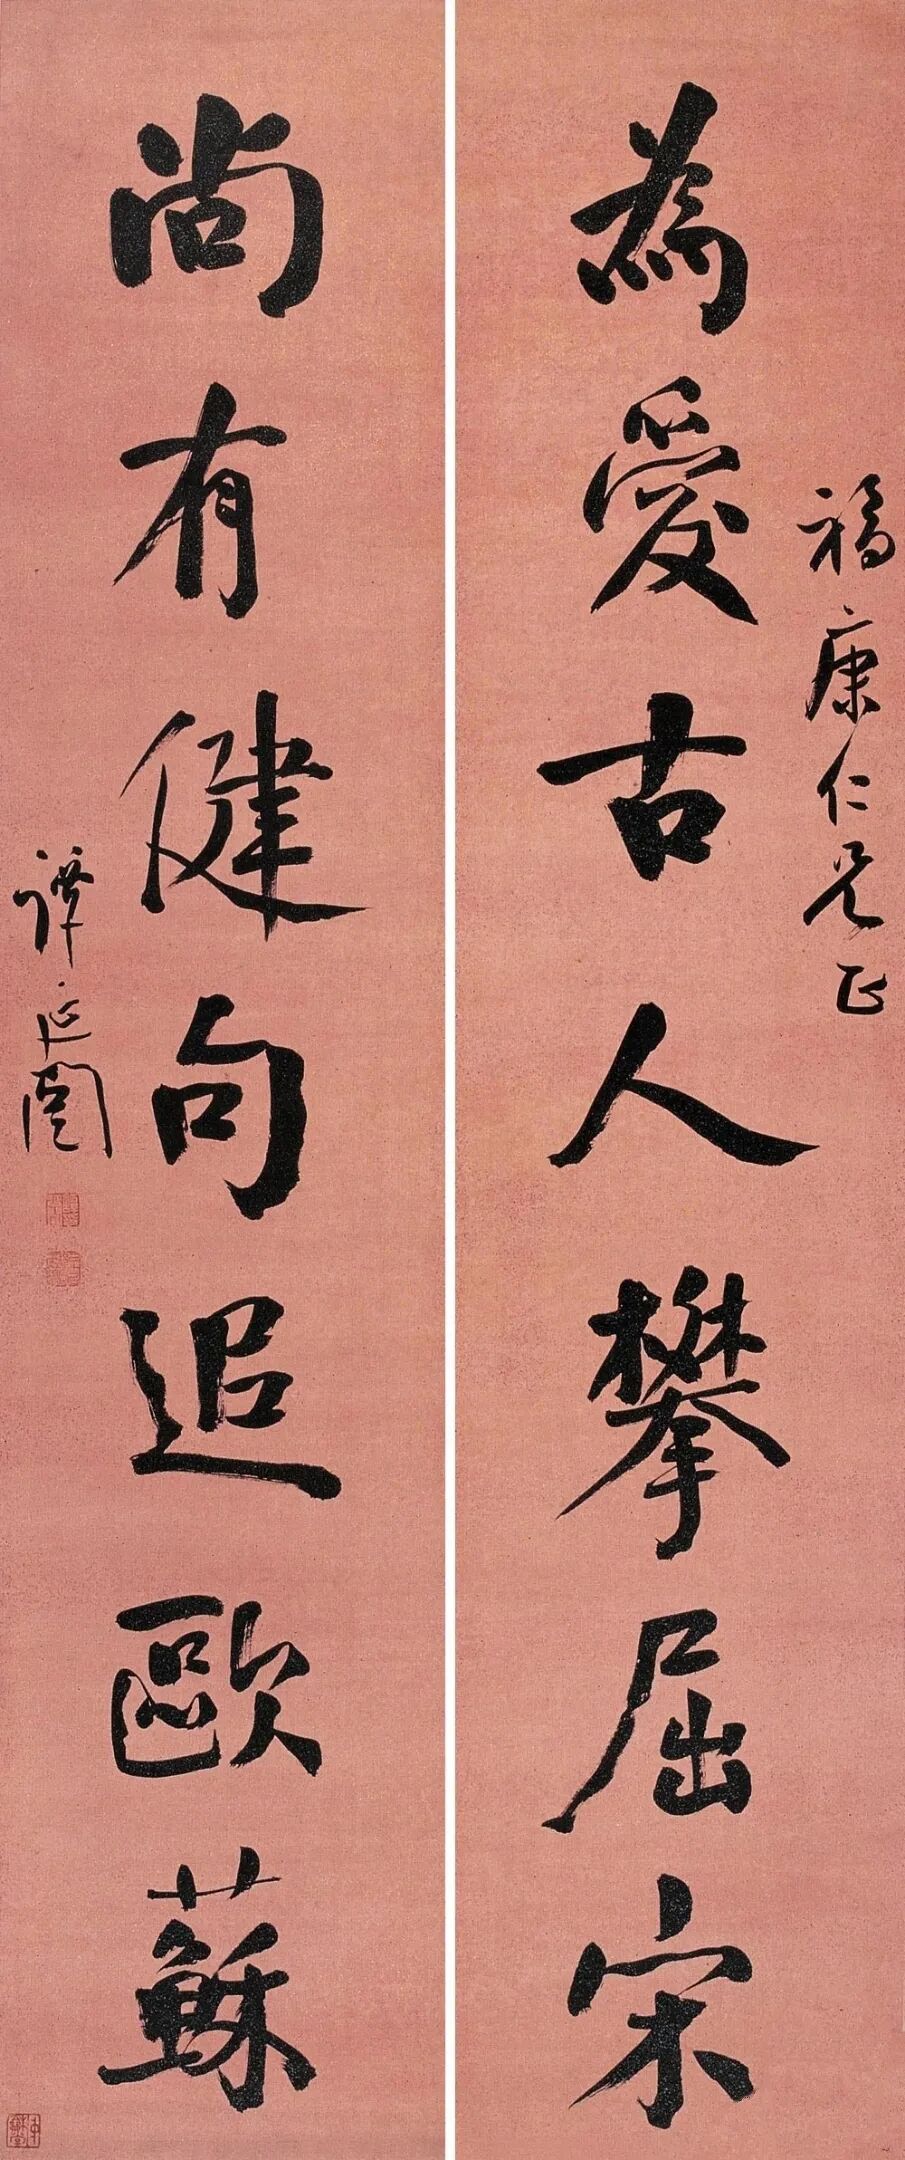 為愛古人攀屈宋
福康仁兄正
尚有健句追歐蘇
譚延闓